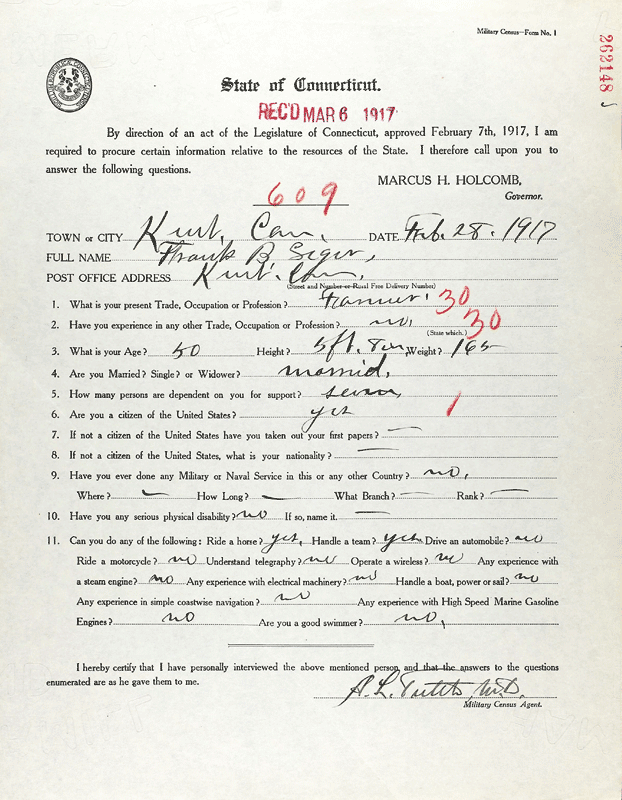 Military Census—Form No. 1
262148
State of Connecticut.
REC'D MAR 6 1917
By direction of an act of the Legislature of Connecticut, approved February 7th, 1917, I am
required to procure certain information relative to the resources of the State. I therefore call upon you to
answer the following questions.
MARCUS H. HOLCOMB,
Governor.
609
TOWN or CITY Kent, Conn. DATE Feb. 28. 1917
FULL NAME Frank B.
POST OFFICE ADDRESS Kent. Conn,
(Street and Number or Rural Free Delivery Number)
1. What is your present Trade, Occupation or Profession? Farmer. 30
2. Have you experience in any other Trade, Occupation or Profession? no, 30
(State which.)
3. What is your Age? 50 Height? 5 ft. 8 in, Weight? 165
4. Are you Married? Single? or Widower? married,
5. How many persons are dependent on you for support? seven,
6. Are you a citizen of the United States? yes 1
7. If not a citizen of the United States have you taken out your first papers? —
8. If not a citizen of the United States, what is your nationality? —
9. Have you ever done any Military or Naval Service in this or any other Country? no,
Where? — How Long? — What Branch? — Rank? —
10. Have you any serious physical disability? no If so, name it. —
11. Can you do any of the following: Ride a horse? yes, Handle a team? yes, Drive an automobile? no
Ride a motorcycle? no Understand telegraphy? no Operate a wireless? no Any experience with
a steam engine? no Any experience with electrical machinery? no Handle a boat, power or sail? no
Any experience in simple coastwise navigation? no Any experience with High Speed Marine Gasoline
Engines? no Are you a good swimmer? no,
I hereby certify that I have personally interviewed the above mentioned person and that the answers to the questions
enumerated are as he gave them to me.
A. L. Tuttle, M.D.
Military Census Agent.